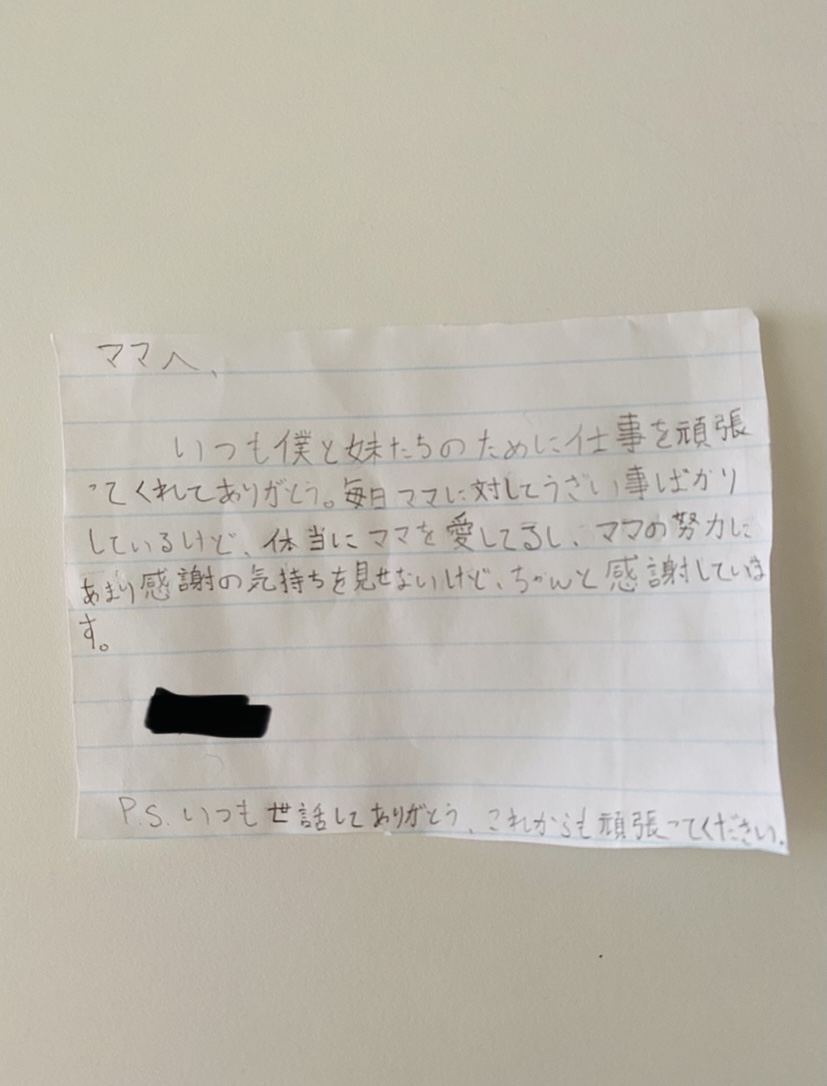 ママへ、
いつも僕と妹たちのために仕事を頑張
ってくれてありがとう。毎日ママに対してうざい事ばかり
しているけど、体当にママを愛してるし、ママの努力に
あまり感謝の気持ちを見せないけど、ちゃんと感謝していま
す。
P.S. いつも世話してありがとう、これからも頑張ってください。